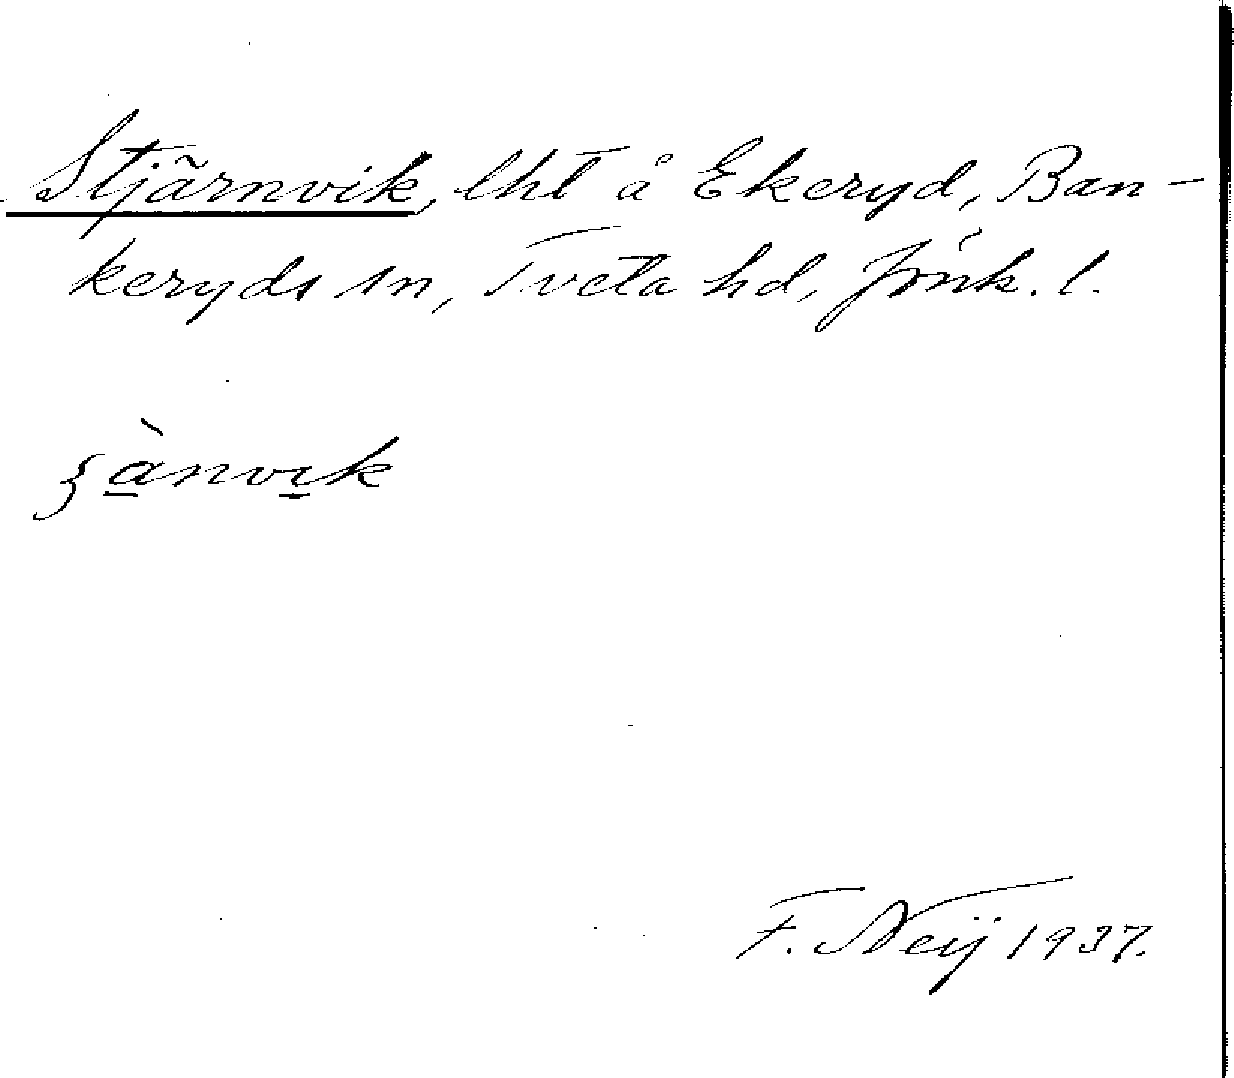 Stjärnvik, lht å Ekeryd, Ban-
keryds sn, Tveta hd, Jönk. l.
ʒà̠nvi̠k
F. Neij 1937.